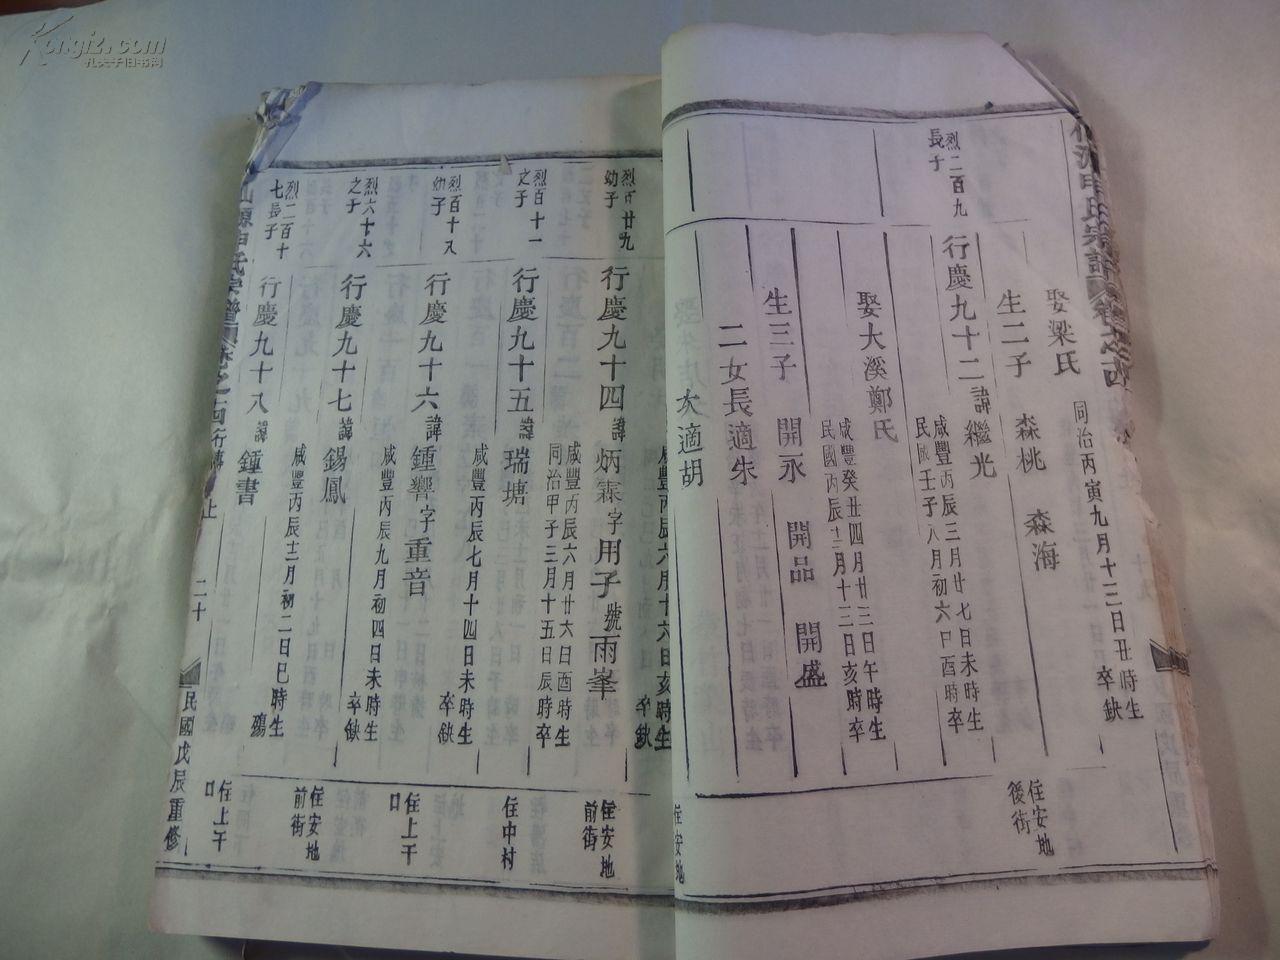 娶梁氏
同治丙寅九月十三日丑時生
卒缺
生二子 森桃 森海
住安地
後街
烈二百九
長子
行慶九十二諱繼光
咸豐丙辰三月廿七日未時生
民國壬子八月初六日酉時卒
娶大溪鄭氏
咸豐癸丑四月廿三日午時生
民國丙辰十二月十三日亥時卒
生三子 開永 開品 開盛
二女長適朱
次適胡
咸豐丙辰六月十六日亥時生
卒缺
住安地
烈百廿九
幼子
行慶九十四諱炳霖字用予號雨峯
咸豐丙辰六月廿六日酉時生
同治甲子三月十五日辰時卒
住安地
前街
烈百十一
之子
行慶九十五諱瑞塘
咸豐丙辰七月十四日未時生
卒缺
住中村
烈百十八
幼子
行慶九十六諱鍾響字重音
咸豐丙辰九月初四日未時生
卒缺
住上干
口
烈六十六
之子
行慶九十七諱錫鳳
住安地
前街
烈二百十
七長子
行慶九十八諱鍾書
咸豐丙辰十二月初二日巳時生
殤
住上干
口
二十
民國戊辰重修
Kongfz.com
孔夫子旧书网